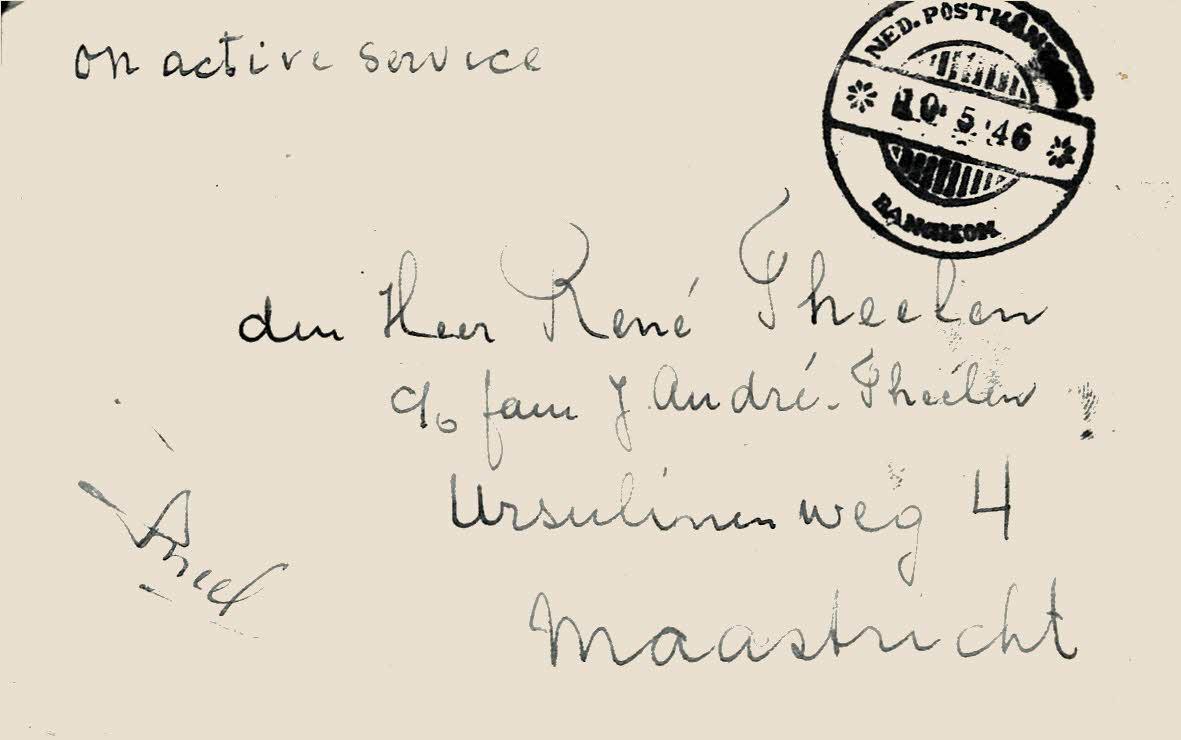 on active service
NED. POSTKANT
10 5 '46
BANGKOK
den Heer René Theelen
c/o fam J. André-Theelen
Ursulinenweg 4
Maastricht